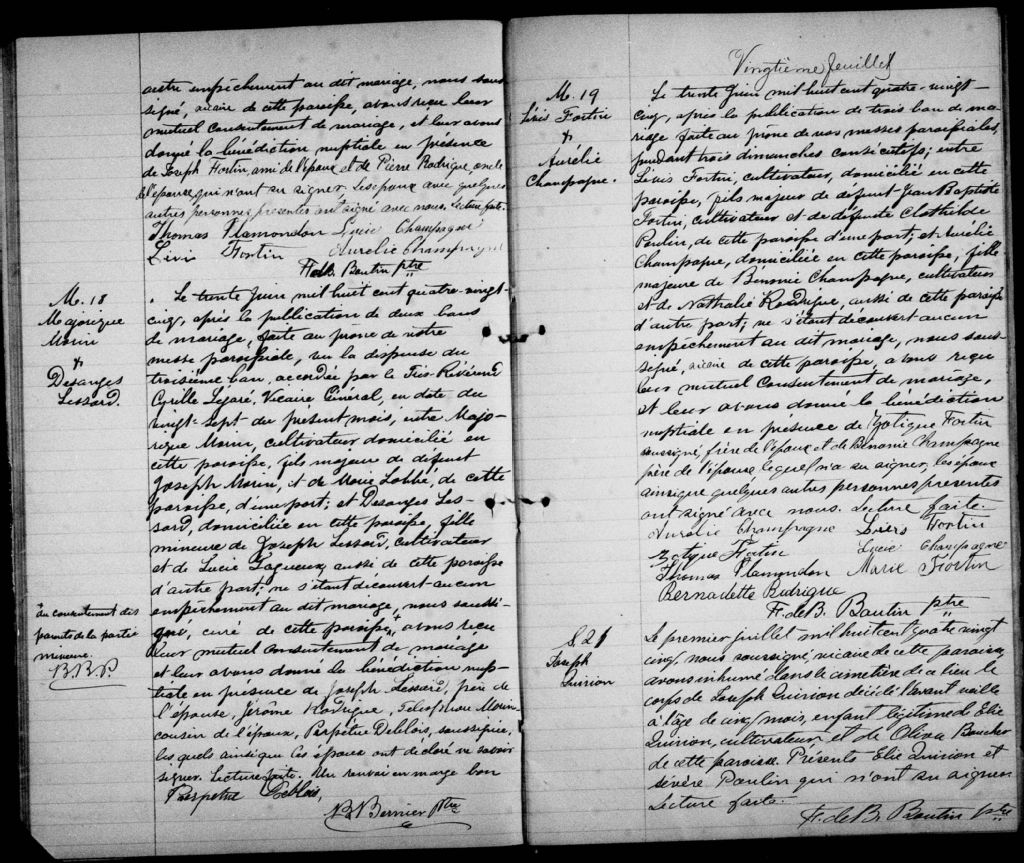 autre empêchement au dit mariage, nous sous
signé, vicaire de cette paroisse, avons reçu leur
mutuel consentement de mariage, et leur avons
donné la bénédiction nuptiale en présence
de Joseph Fortin, ami de l'époux et de Pierre Rodrigue, oncle
de l'épouse, qui n'ont su signer, Les époux avec quelques
autres personnes présentes ont signé avec nous. Lecture faite.
Thomas Plamondon Lucie Champagne
Livis Fortin Aurelie Champagne
F. de B. Boutin ptre
M. 18
Majorique
Morin
&
Désanges
Lessard.
Le trente Juin mil huit cent quatre-vingt-
cinq, après la publication de deux bans
de mariage, faite au prône de notre
messe paroissiale, vu la dispense du
troisième ban, accordée par le Très-Révérend
Cyrille Legaré, Vicaire Général, en date du
vingt-sept du présent mois, entre Majo-
rique Morin, cultivateur domicilié en
cette paroisse, fils majeur de défunt
Joseph Morin, et de Marie Labbé, de cette
paroisse, d'une part; et Désanges Les-
sard, domiciliée en cette paroisse, fille
mineure de Joseph Lessard, cultivateur
et de Lucie Lagueux, aussi de cette paroisse
d'autre part; ne s'étant découvert aucun
empêchement au dit mariage, nous soussi-
gné, curé de cette paroisse, + avons reçu
leur mutuel consentement de mariage
et leur avons donné la bénédiction nup-
tiale en présence de Joseph Lessard, père de
l'épouse, Jérôme Rodrigue, Télesphore Morin
cousin de l'époux, Perpétue Deblois, soussignée,
les quels ainsi que les époux ont déclaré ne savoir
signer. Lecture faite. Un renvoi en marge bon
Perpetue Deblois,
Bernier ptre
+ du consentement des
parents de la partie
mineure.
Vingtième feuillet
M. 19
Lévis Fortin
&
Aurélie
Champagne.
Le trente Juin mil huit cent quatre-vingt-
cinq, après la publication de trois ban de ma-
riage faite au prône de nos messes paroissiales,
pendant trois dimanches consécutifs; entre
Lévis Fortin, cultivateur, domicilié en cette
paroisse, fils majeur de défunt Jean Baptiste
Fortin, cultivateur et de défunte Clothilde
Poulin, de cette paroisse d'une part; et Aurélie
Champagne, domiciliée en cette paroisse, fille
majeure de Bénonie Champagne, cultivateur
et de Nathalie Rodrigue, aussi de cette paroisse
d'autre part; ne s'étant découvert aucun
empêchement au dit mariage, nous sous-
signé, vicaire de cette paroisse, avons reçu
leur mutuel consentement de mariage,
et leur avons donné la bénédiction
nuptiale en présence de Zotique Fortin
soussigné, frère de l'époux et de Bénonie Champagne
père de l'épouse lequel n'a su signer, les époux
ainsi que quelques autres personnes présentes
ont signé avec nous. Lecture faite.
Aurélie Champagne Fortin
Zotique Fortin Lucie Champagne
Thomas Plamondon Marie Fortin
Bernadette Rodrigue
F. de B. Boutin ptre
Joseph
Quirion
Le premier juillet mil huit cent quatre vingt
cinq, nous soussigné, vicaire de cette paroisse,
avons inhumé dans le cimetière de ce lieu le
corps de Joseph Quirion décédé l'avant veille
à l'âge de cinq mois, enfant légitime de Elie
Quirion, cultivateur et de Oliva Boucher
de cette paroisse. Présents Elie Quirion et
Sévère Poulin qui n'ont su signer
Lecture faite.
F. de B. Boutin ptre